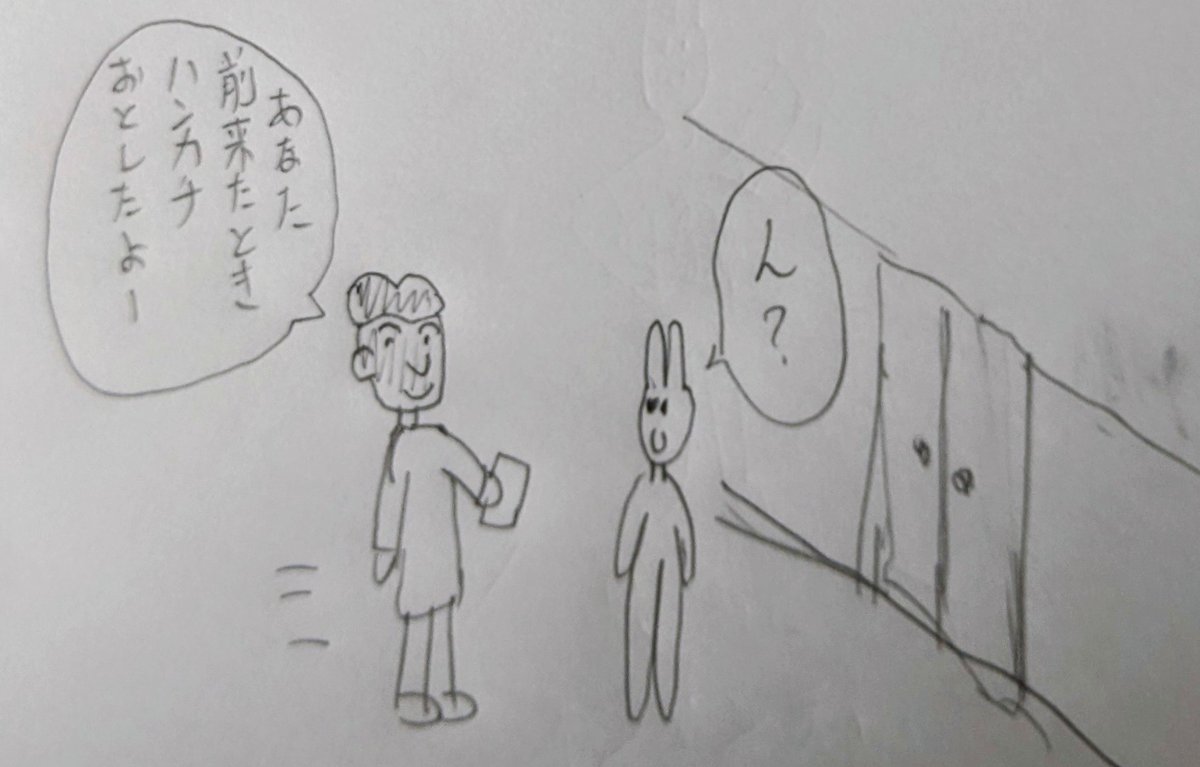 あなた
前来たとき
ハンカチ
おとしたよー
ん?